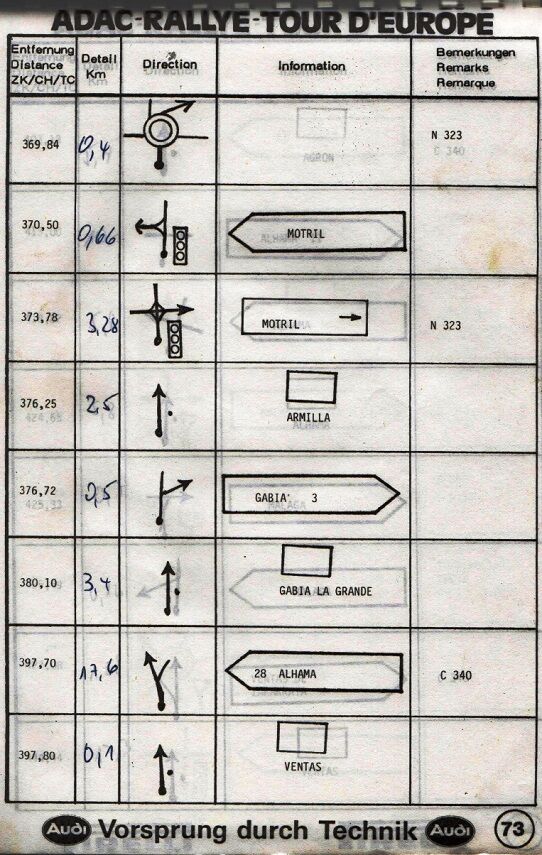 ADAC-RALLYE-TOUR D'EUROPE
Entfernung Detail Direction Information Bemerkungen
Distance Km Remarks
ZK/CH/TC Remarque
369,84 0,4 N 323
370,50 0,66 MOTRIL
373,78 3,28 MOTRIL N 323
376,25 2,5 ARMILLA
376,72 0,5 GABIA 3
380,10 3,4 GABIA LA GRANDE
397,70 17,6 28 ALHAMA C 340
397,80 0,1 VENTAS
Audi Vorsprung durch Technik Audi 73